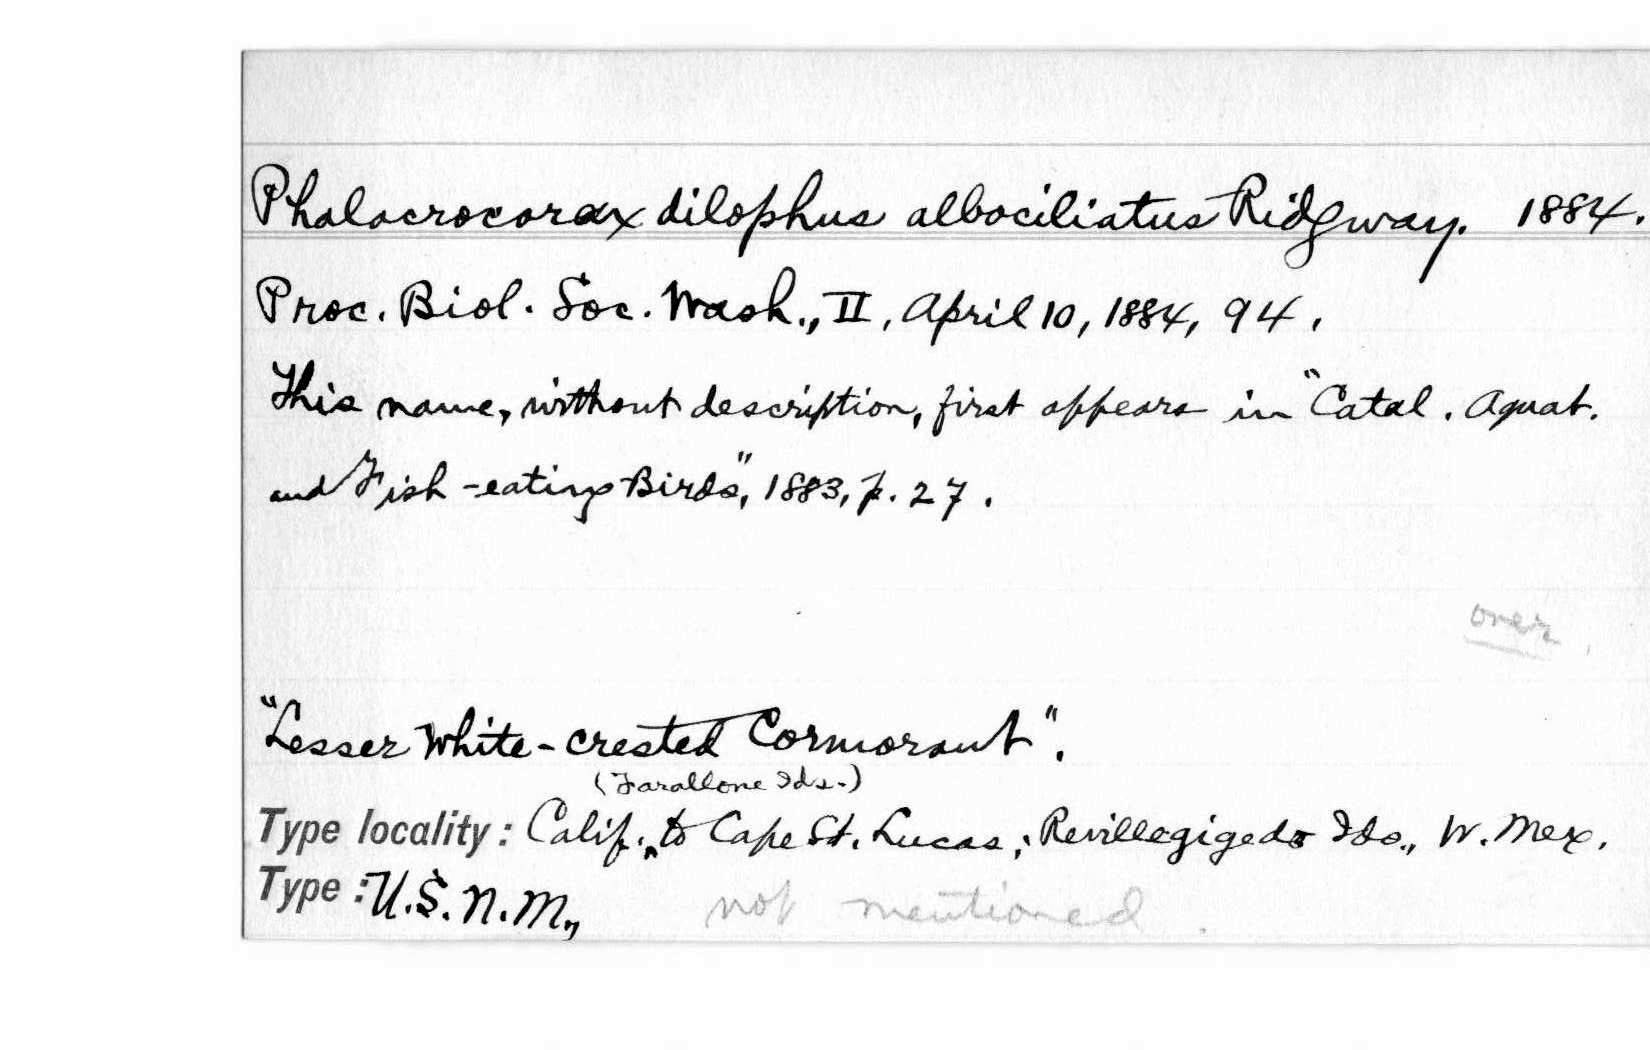 Phalacrocorax dilophus albociliatus Ridgway. 1884.
Proc. Biol. Soc. Wash., II, April 10, 1884, 94.
This name, without description, first appears in "Catal. Aquat.
and Fish-eating Birds", 1883, p. 27.
over
"Lesser White-crested Cormorant".
(Farallone Ids.)
Type locality: Calif.,^ to Cape St. Lucas; Revillegigedo Ids., W. Mex.
Type: U.S.N.M., not mentioned.